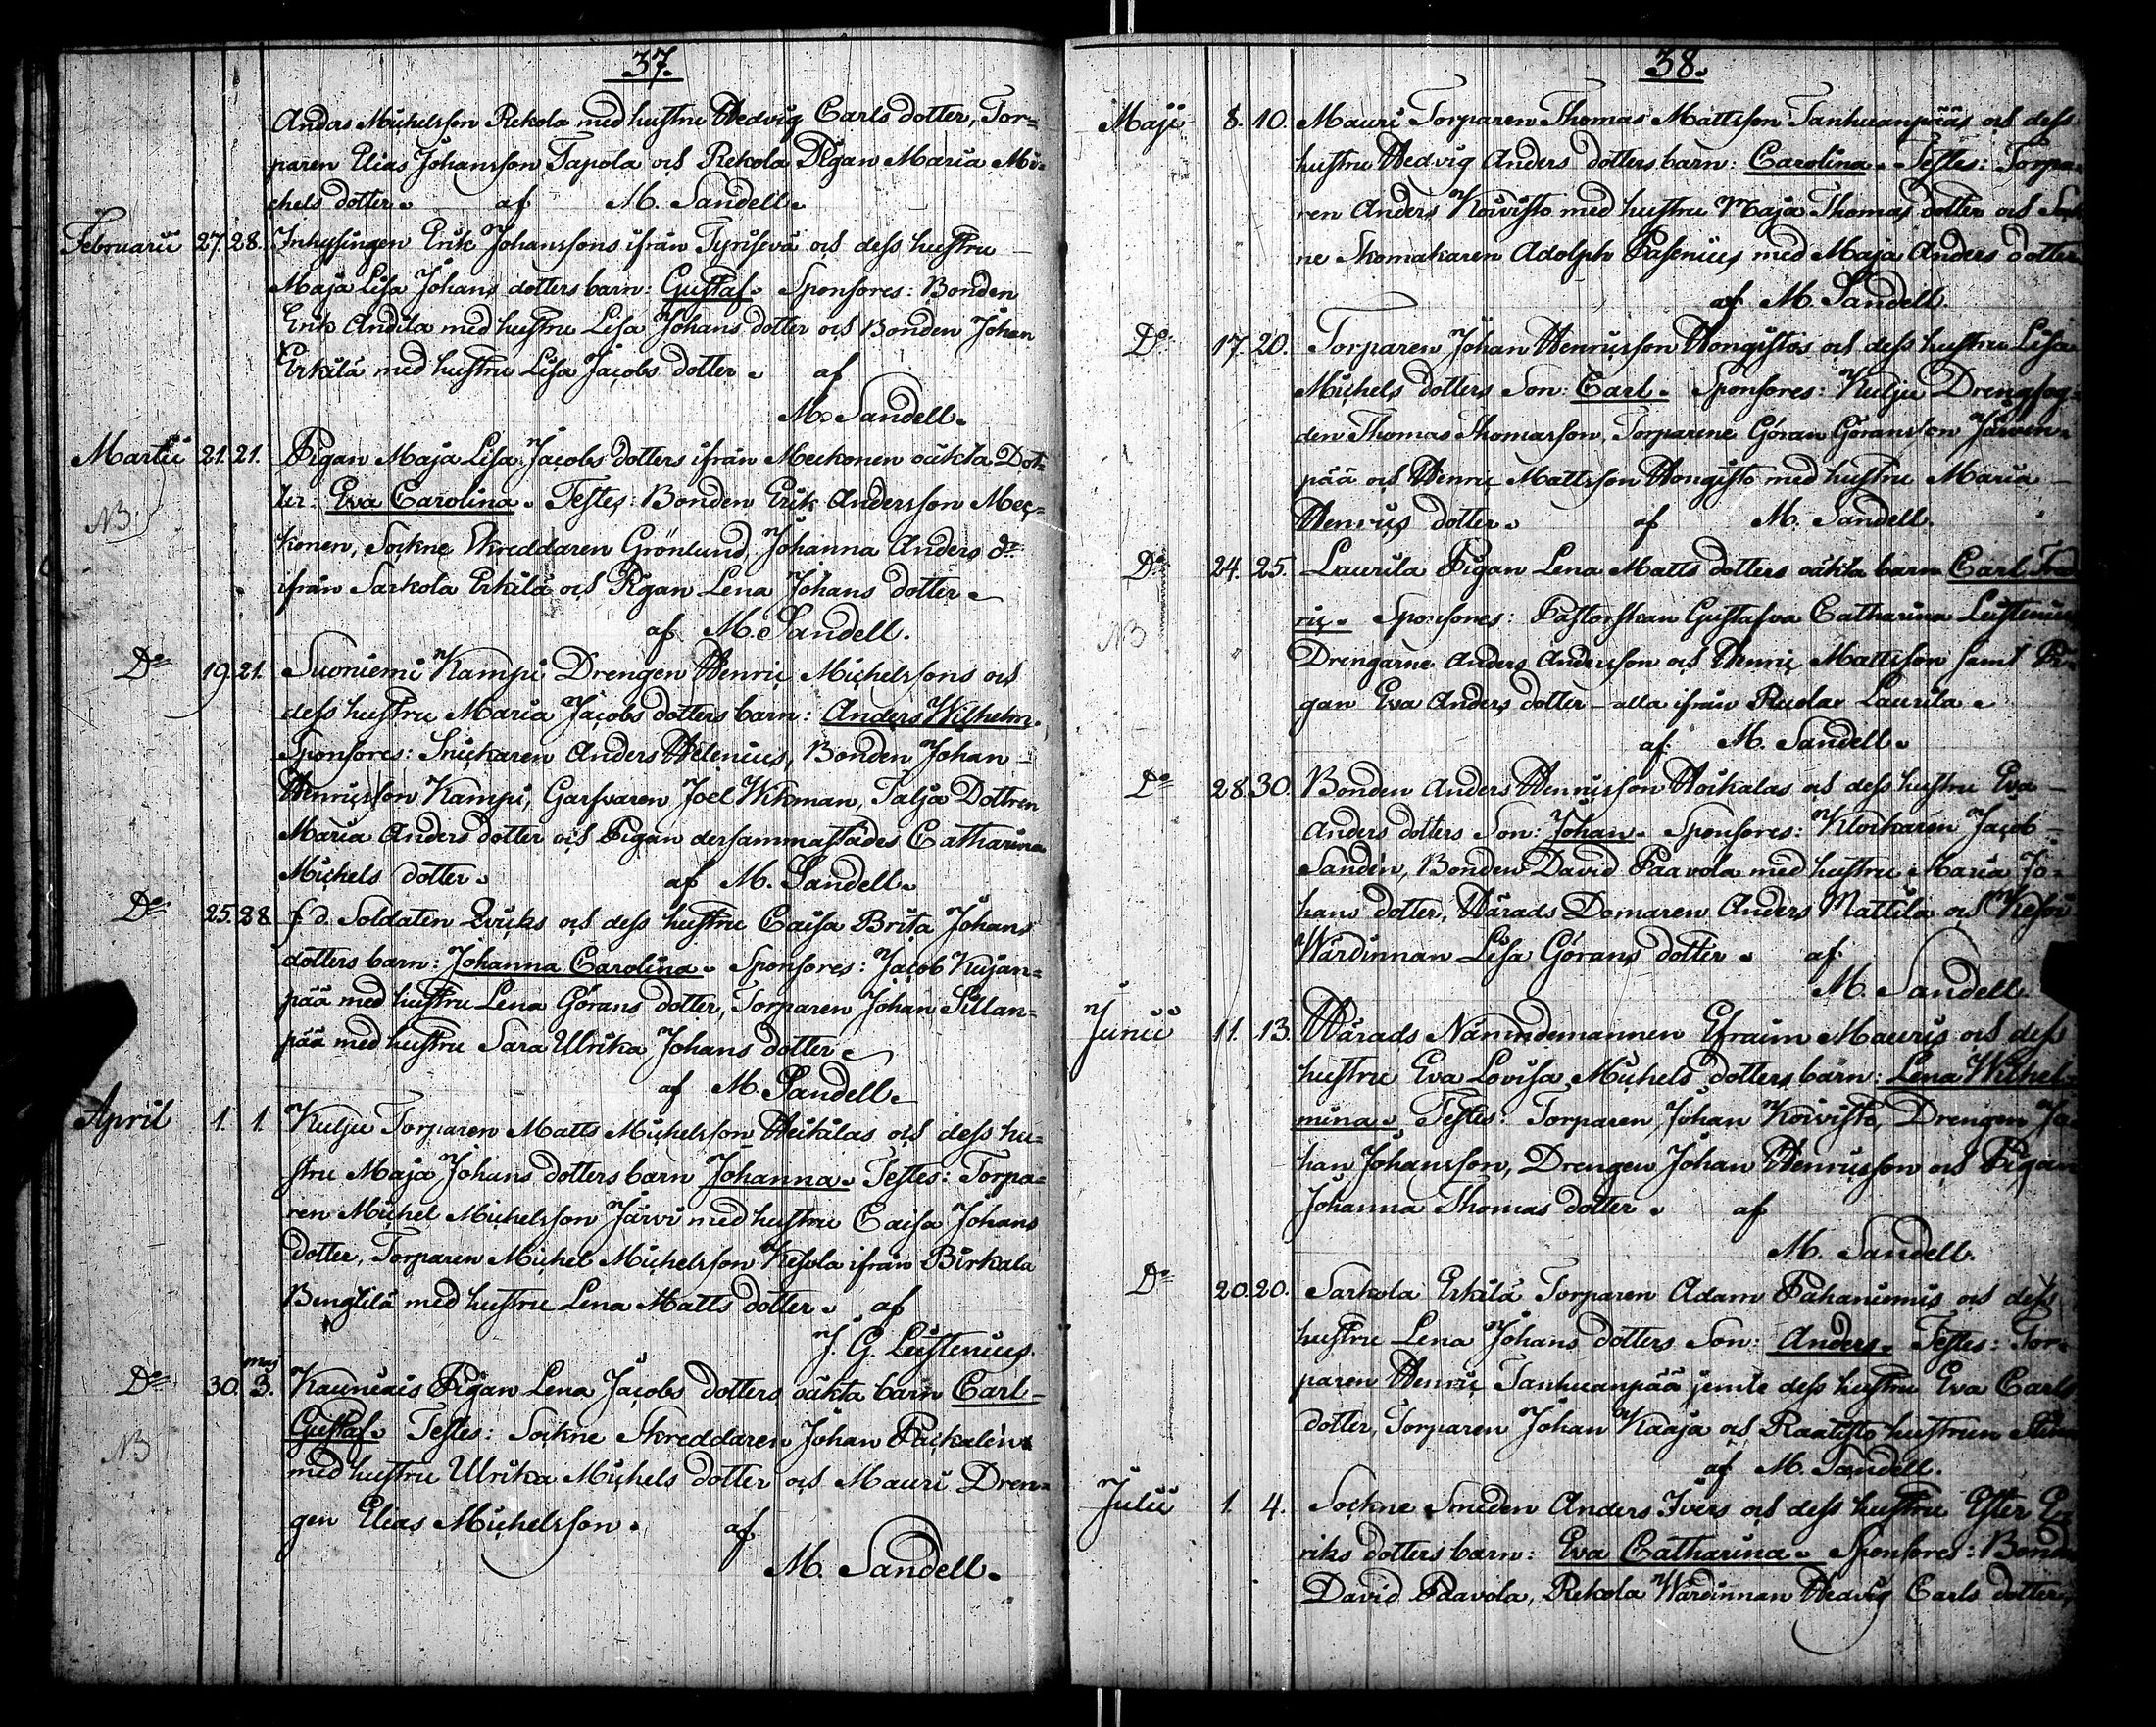 37.
Anders Michelsson Rekola med hustru Hedvig Carls dotter, Tor=
paren Elias Johansson Tapola och Rekola Pigan Maria Mi=
chels dotter. af M. Sandell.
Februarii 27. 28. Inhysingen Erik Johanssons ifrån Tyrisevä och dess hustru
Maja Lisa Johans dotters barn: Gustaf. Sponsores: Bonden
Erik Andila med hustru Lisa Johans dotter och Bonden Johan
Erkilä med hustru Lisa Jacobs dotter. af
M. Sandell.
Martii 21. 21. Pigan Maja Lisa Jacobs dotters ifrån Meckonen oäkta Dot=
NB. ter: Eva Carolina. Testes: Bonden Erik Andersson Mec=
konen, Sockne Skreddaren Grönlund, Johanna Anders do
ifrån Sarkola Erkilä och Pigan Lena Johans dotter.
af M. Sandell.
Do 19. 21. Suoniemi Kampi Drengen Henric Michelssons och
dess hustru Maria Jacobs dotters barn: Anders Wilhelm.
Sponsores: Snickaren Anders Helenius, Bonden Johan
Henricsson Kampi, Garfvaren Joel Wikman, Talja Dottren
Maria Anders dotter och Pigan dersammastädes Catharina
Michels dotter. af M. Sandell.
Do 25. 28. f d. Soldaten Qvicks och dess hustru Caisa Brita Johans
dotters barn: Johanna Carolina. Sponsores: Jacob Kujan=
pää med hustru Lena Görans dotter, Torparen Johan Sillan=
pää med hustru Sara Ulrika Johans dotter
af M. Sandell.
April 1. 1. Kulju Torparen Matts Michelsson Heikiläs och dess hu=
stru Maja Johans dotters barn Johanna. Testes: Torpa=
ren Michel Michelsson Järvi med hustru Caisa Johans
dotter, Torparen Michel Michelsson Kesola ifrån Birkala
Bengtilä med hustru Lena Matts dotter. af
J. G. Listenius.
maj
Do 30. 3. Kauniais Pigan Lena Jacobs dotters oäkta barn Carl
NB Gustaf. Testes: Sockne Skreddaren Johan Packalén
med hustru Ulrika Michels dotter och Mauri Dren=
gen Elias Michelsson. af
M. Sandell.
38.
Maji 8. 10. Mauri Torparen Thomas Mattsson Tanhuanpääs och dess
hustru Hedvig Anders dotters barn: Carolina. Testes: Torpa=
ren Anders Koivisto med hustru Maja Thomas dotter och Sock
ne Skomakaren Adolph Pasenius med Maja Anders dotter
af M. Sandell.
Do 17. 20. Torparen Johan Henricsson Hongistos och dess hustru Lisa
Michels dotters Son: Carl. Sponsores: Kulju Drengfog=
den Thomas Thomasson, Torparene Göran Göransson Järven=
pää och Henric Mattsson Hongisto med hustru Maria
Henrics dotter. af M. Sandell.
Do 24. 25. Laurila Pigan Lena Matts dotters oäkta barn Carl Fred
NB ric. Sponsores: Pastorskan Gustafva Catharina Listenius
Drengarne Anders Andersson och Henric Mattsson samt Pi=
gan Eva Anders dotter – alla ifrån Laurila.
af. M. Sandell.
Do 28. 30. Bonden Anders Henricsson Hoikalas och dess hustru Eva
Anders dotters Son: Johan. Sponsores: Klockaren Jacob
Sandén, Bonden David Paavola med hustru Maria Jo=
hans dotter, Härads Domaren Anders Mattila och Kesoi
Wärdinnan Lisa Görans dotter. af.
M. Sandell.
Junii 11. 13. Härads Nämndemannen Efraim Mauris och dess
hustru Eva Lovisa Michels dotters barn: Lena Wilhel=
mina. Testes: Torparen Johan Koivisto, Drengen Jo
han Johansson, Drengen Johan Henricsson och Pigan
Johanna Thomas dotter. af
M. Sandell.
Do 20. 20. Sarkola Erkilä Torparen Adam Pahaniemis och dess
hustru Lena Johans dotters Son: Anders. Testes: Tor=
paren Henric Tanhuanpää jemte dess hustru Eva Carls
dotter, Torparen Johan Kaaja och Raatisto hustrun
af M. Sandell.
Julii 1. 4. Sockne Smeden Anders Ivers och dess hustru Ester E
riks dotters barn: Eva Catharina. Sponsores: Bonden
David Paavola, Rekola Wärdinnan Hedvig Carls dotter,